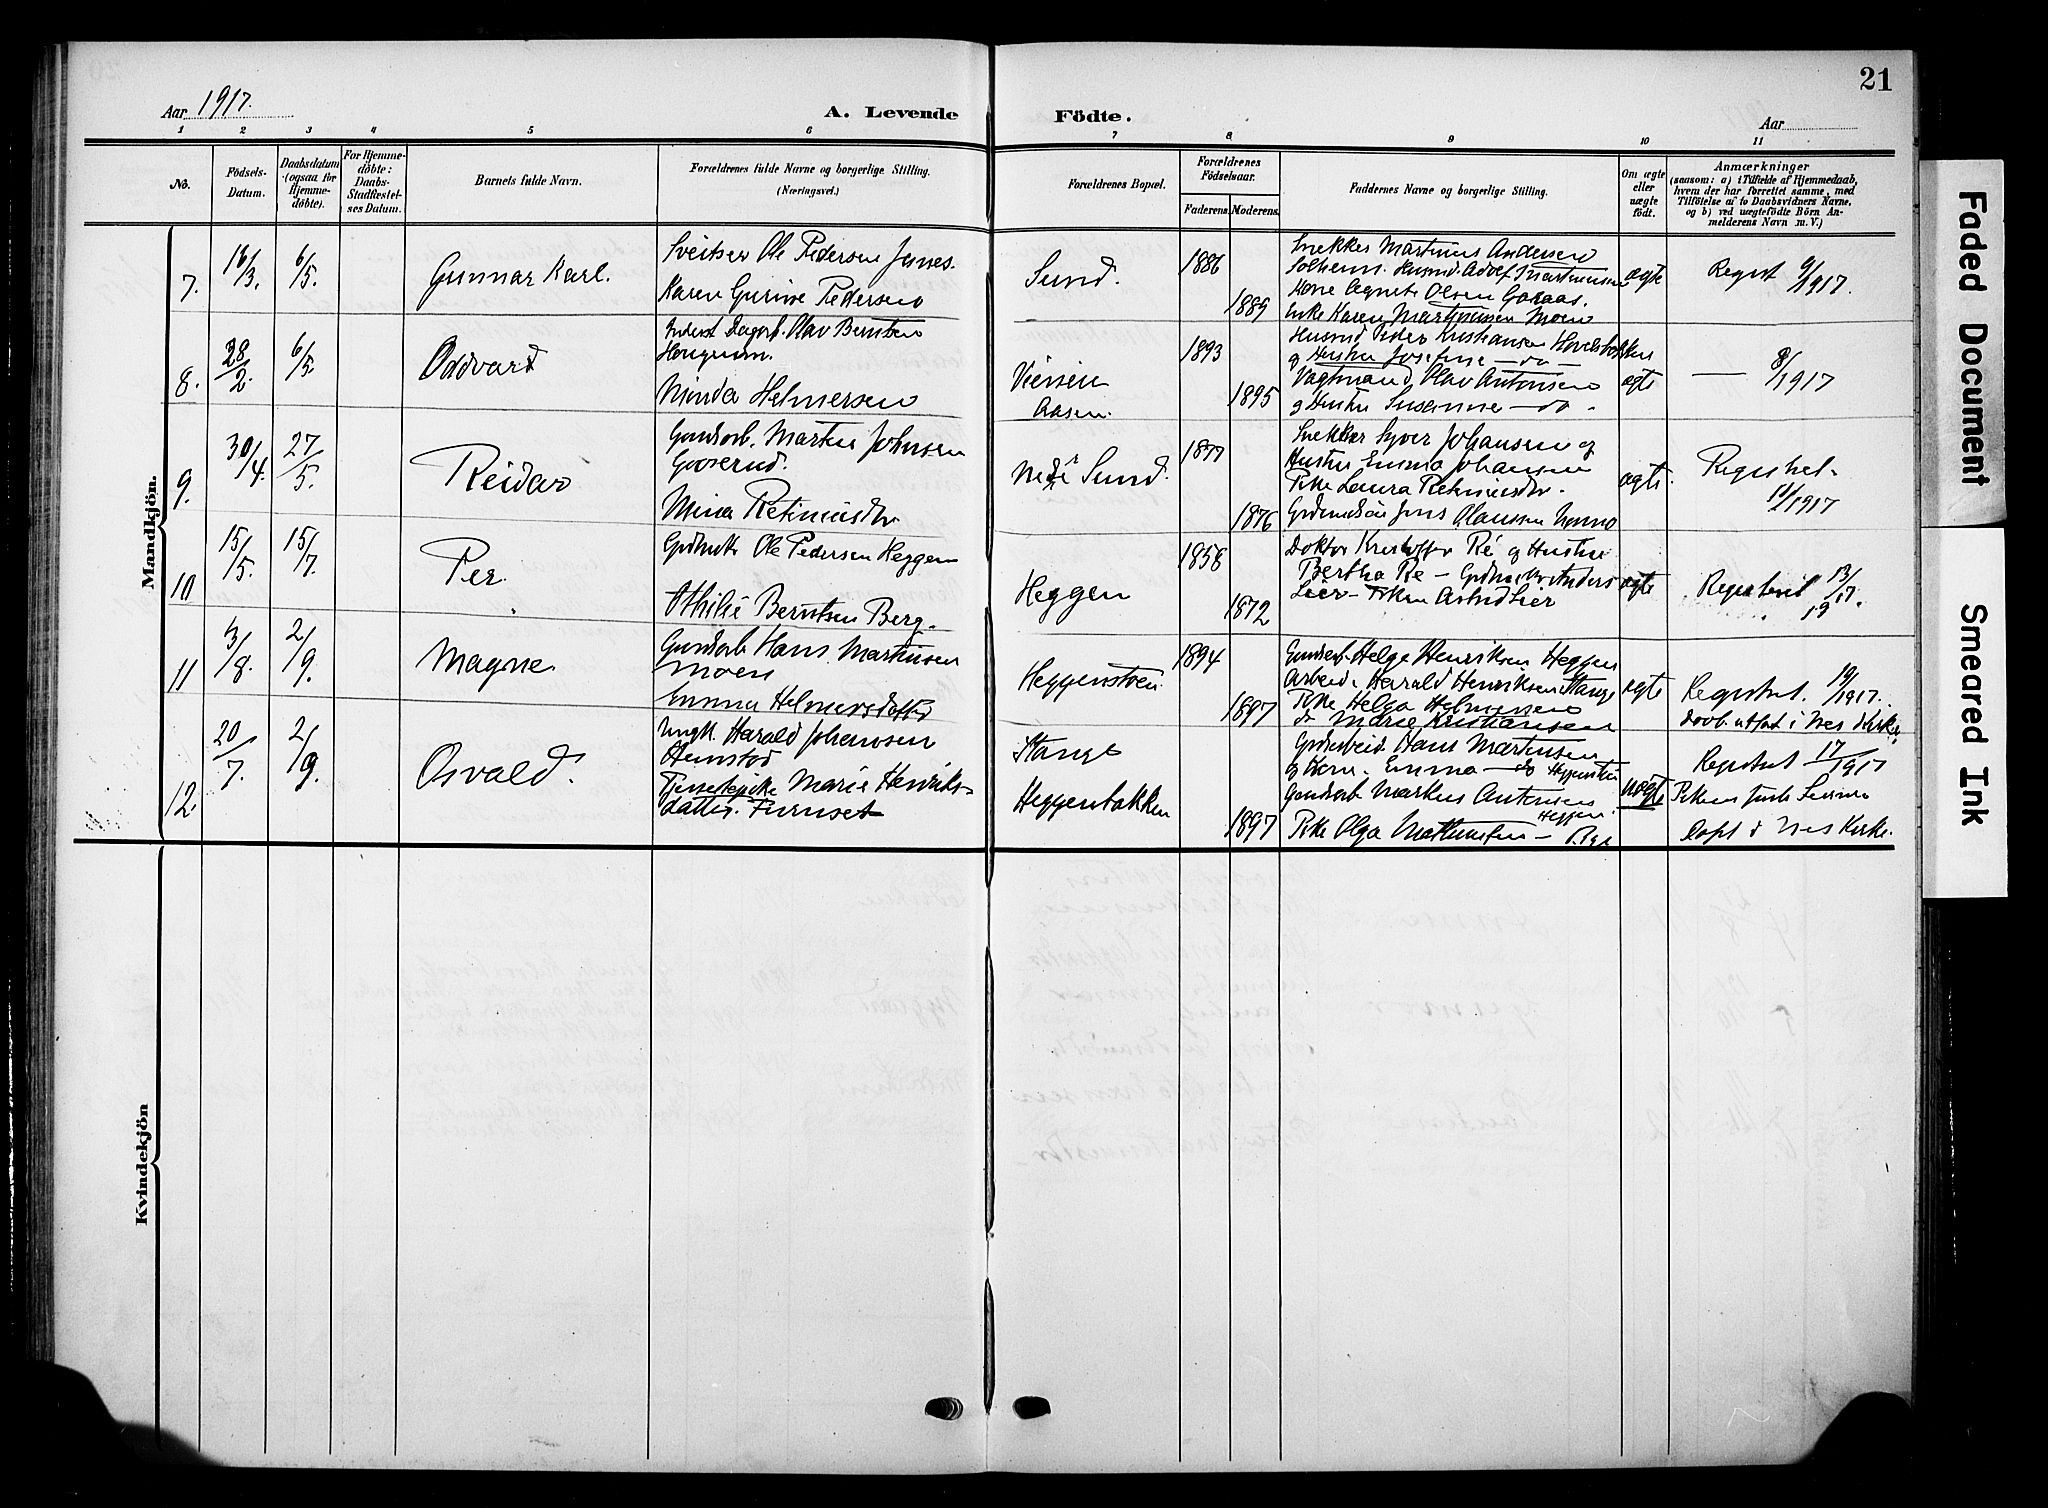 21
Aar 1917.
A. Levende Födte.
Aar
1 2 3 4 5 6 7 8 9 10 11
No.
Födsels-
Datum.
Daabsdatum
(ogsaa for
Hjemme-
döbte).
For Hjemme-
döbte:
Daabs-
Stadfæstel-
ses Datum.
Barnets fulde Navn.
Forældrenes fulde Navne og borgerlige Stilling.
(Næringsvei.)
Forældrenes Bopæl.
Forældrenes
Födselsaar.
Faderens.
Moderens.
Faddernes Navne og borgerlige Stilling.
Om ægte
eller
uægte
födt.
Anmærkninger
(saasom: a) i Tilfælde af Hjemmedaab,
hvem der har forrettet samme, med
Tilföielse af to Daabsvidners Navne,
og b) ved uægtefödte Börn An-
melderens Navn m. V.)
Mandkjön.
7.
16/3.
6/5.
Gunnar Karl.
Sveitser Ole Pedersen
Karen Gurine Pedersen
Sund.
1886
1889
Snekker Martinus Andersen
Solheim. Husmd. Adolf Martinusen
Kone Agnete Olsen Garaas.
Enke Karen Martinussen Moen
ægte
Regist 9/1917.
8.
28/2.
6/5.
Oddvard
Dagarb. Olav Berntsen
Minda Helmersen
Viersen
Aasen.
1893
1895
Husmd Peder Kristiansen
og Hustru Josefine — do
Vagtmand Olav Antonsen
og Hustru Susanne — do -
ægte
— 8/1917
9.
30/4.
27/5.
Reidar
Gaardarb. Martin Johnsen
Gooserud.
Mina
Nedr Sund.
1877
1876
Snekker Syver Johansen og
Hustru Emma Johansen
Pike Laura
Jens Olaussen
ægte.
Registret
11/1917
10
15/5.
15/7.
Per.
Ole Pedersen Heggen
Othilie Berntsen Berg.
Heggen
1858
1872
Doktor Kristoffer Ré og Hustru
Bertha Re — Anders
Lier — Astrid Lier
ægte
Registreret 13/1917.
11
3/8.
2/9.
Magne.
Gaardarb Hans Martinsen
Moen
Emma Helmersdatter
Heggenstøen
1894
1897
Gaardarb. Helge Henriksen Heggen
Arbeid. Harald Henriksen Stange
Pike Helga Helmersen
do Marie Kristiansen
ægte
Registret. 19/1917.
Daab utført i Nes Kirke.
12.
20/7.
2/9.
Osvald.
Ungk. Harald Johansen
Hemstad
Tjenestepike Marie Henriks-
datter. Furuset
Stange
Heggenbakken
1897
Gaardarbeid. Hans Martinsen
og Kone Emma — do
Gaardarb Markus Antonsen
Heggen.
Pike Olga
uægte
Registret 17/1917
Døpt i Nes Kirke.
Kvindekjön
Faded Document
Smeared Ink